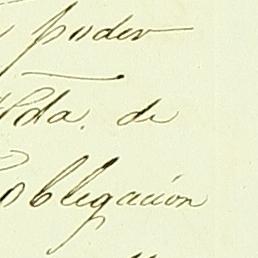 poder
Hda. de
obligación